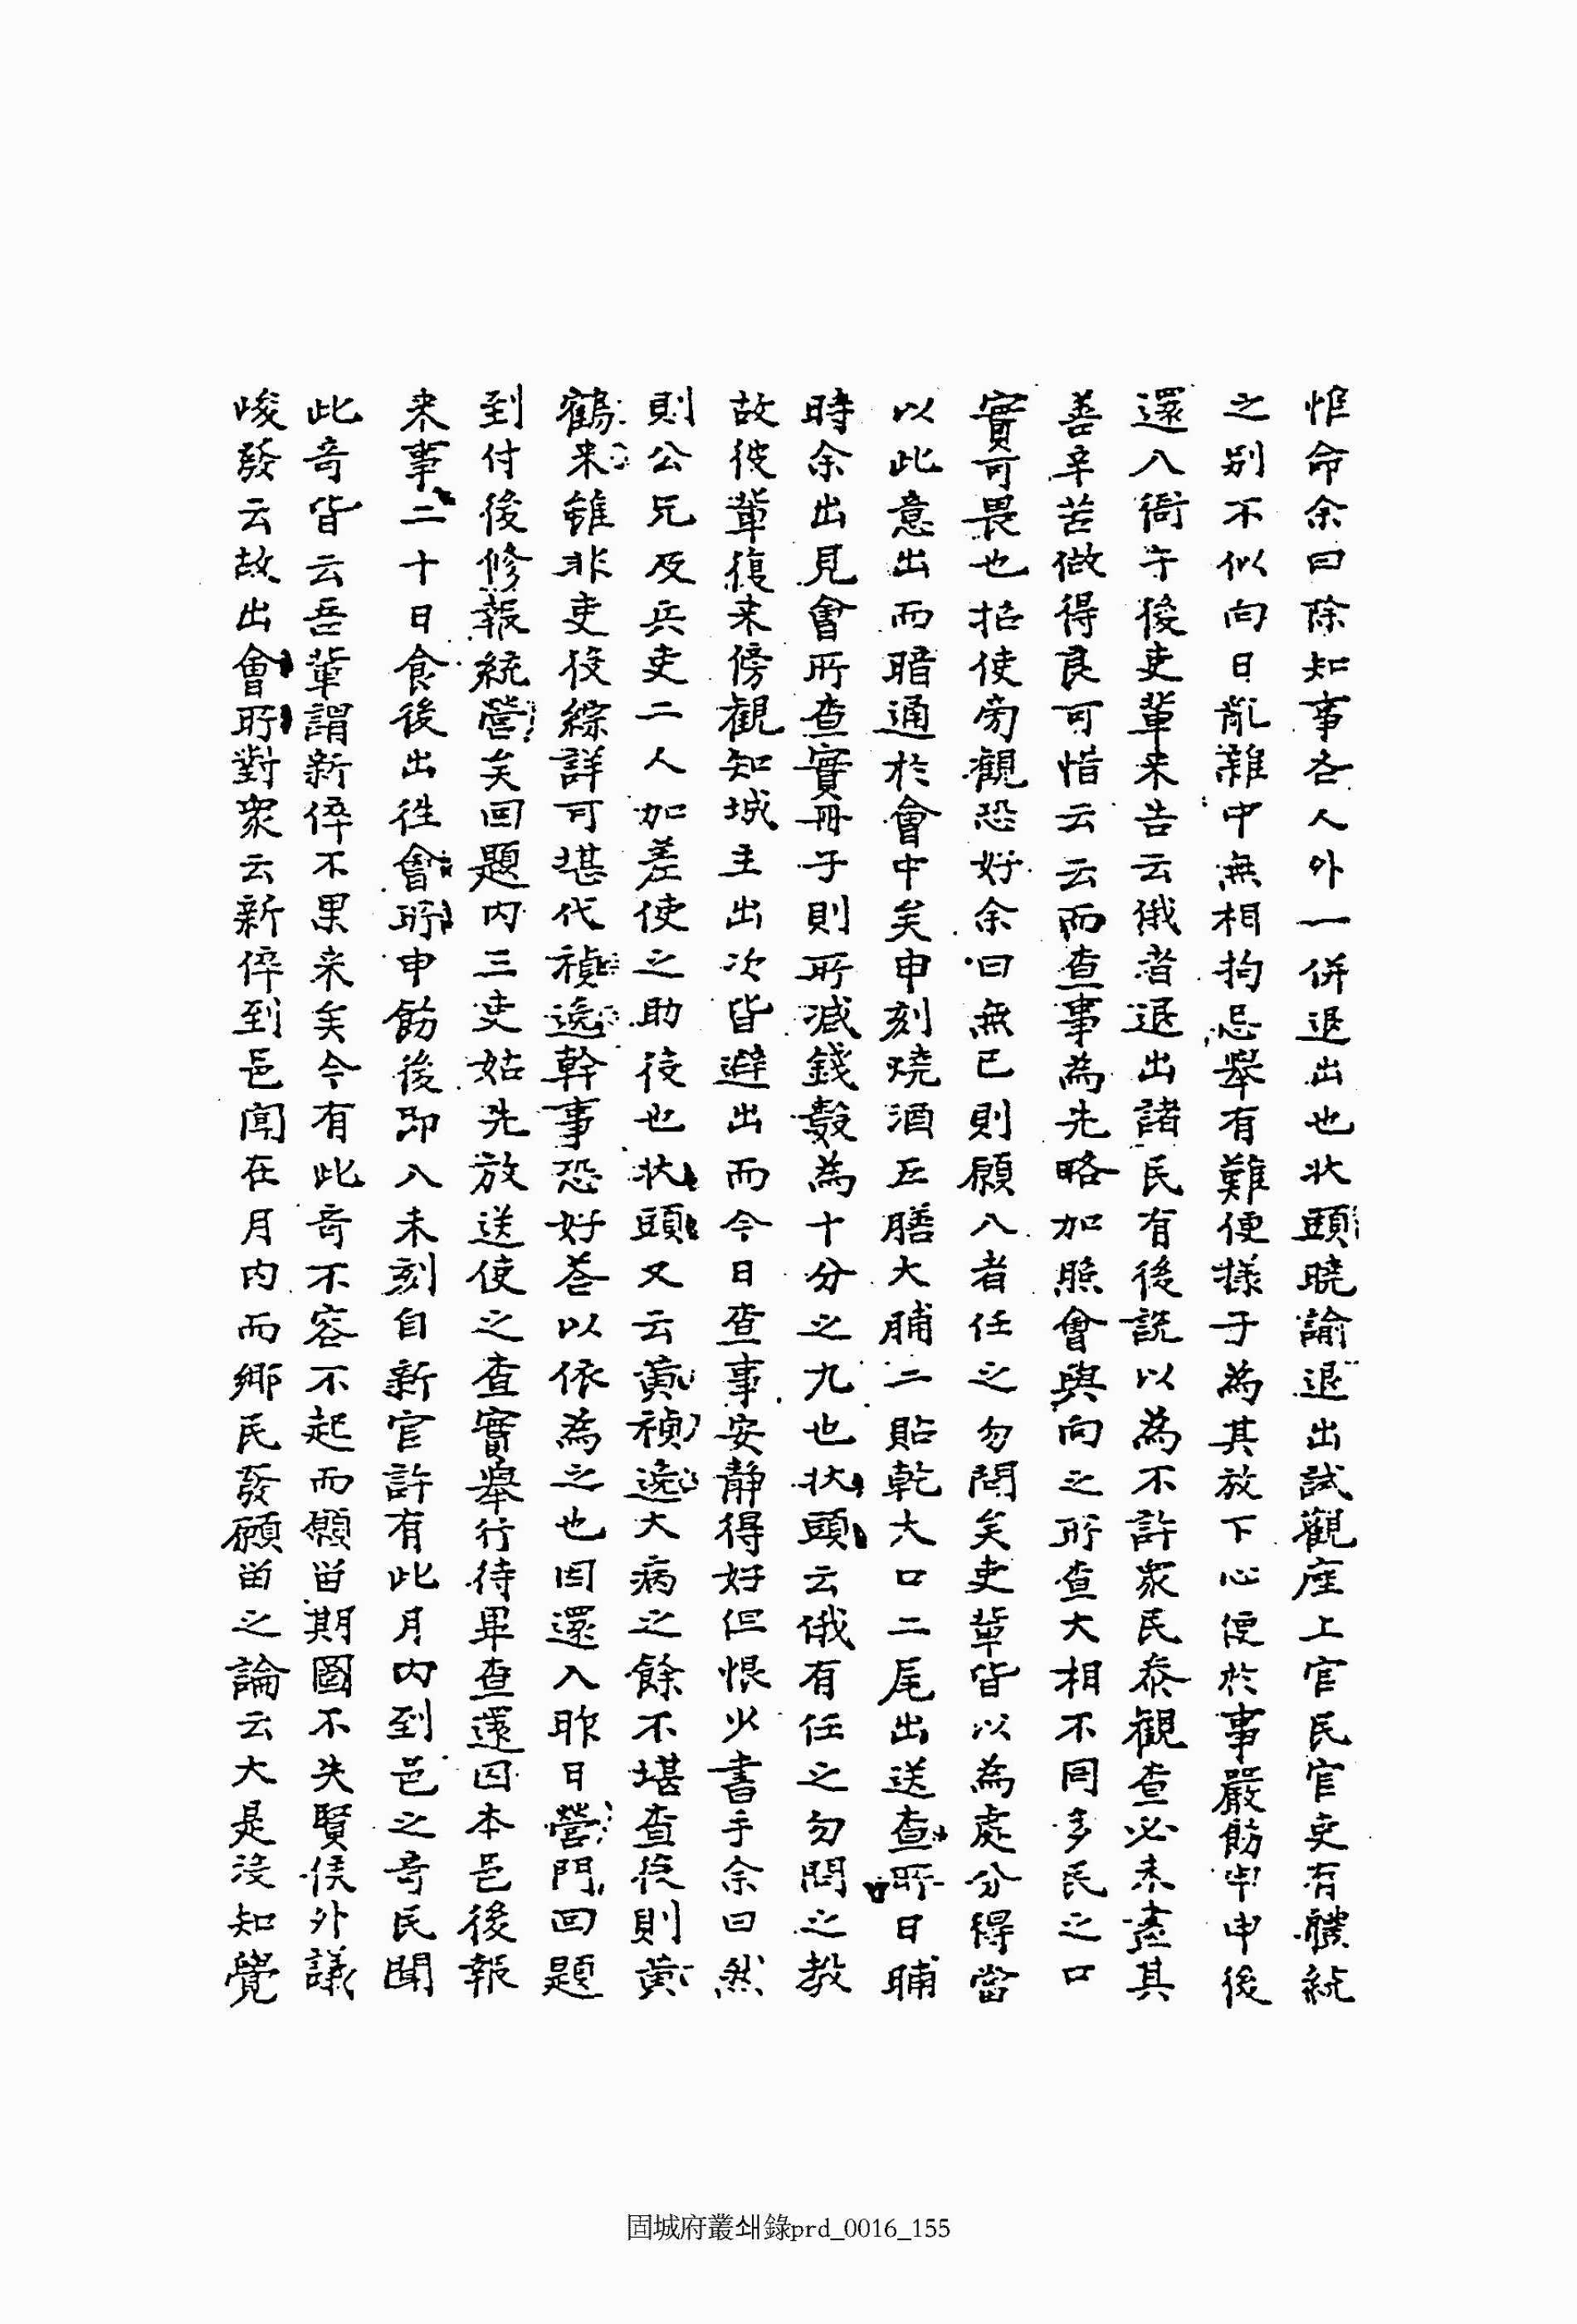 惟命余曰除知事各人外一併退出也状頭曉諭退出試觀座上官民官吏有體統
之别不似向日亂雜中無相拘忌舉有難便樣子為其放下心便於事嚴飭申申後
還入衙午後吏輩来告云俄者退出諸民有後說以為不許衆民叅觀查必未盡其
善辛苦做得良可惜云云而查事為先略加照會與向之所查大相不同多民之口
實可畏也招使旁觀恐好余曰無已則願入者任之勿問矣吏輩皆以為處分得當
以此意出而暗通於會中矣申刻燒酒五膳大脯二貼乾大口二尾出送查所日晡
時余出見會所查實冊子則所减錢數為十分之九也状頭云俄有任之勿問之教
故彼輩復来傍觀知城主出次皆避出而今日查事安静得好但恨少書手余曰然
則公兄及兵吏二人加差使之助役也状頭又云黃禎逸大病之餘不堪查役則黃
鶴来雖非吏役綜詳可堪代禎逸幹事恐好荅以依為之也因還入昨日營門回題
到付後修報統營矣回題內三吏姑先放送使之查實舉行待畢查還囚本邑後報
来事二十日食後出徃會所申飭後即入未刻自新官許有此月内到邑之竒民聞
此竒皆云吾輩謂新倅不果来矣今有此竒不容不起而願留期圖不失賢侯外議
峻發云故出會所對衆云新倅到邑聞在月内而鄉民發願留之論云大是沒知覺
固城府叢쇄錄prd_0016_155